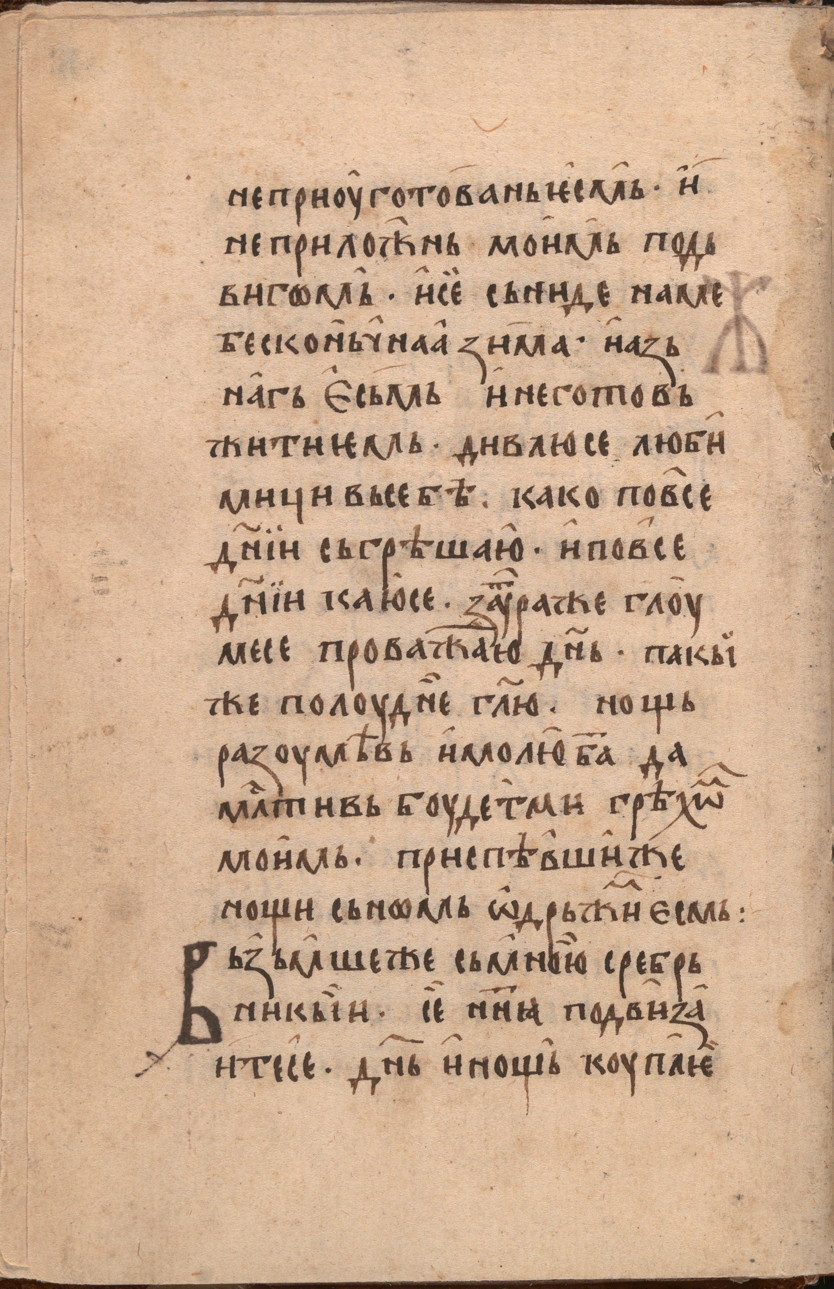 не приоуготовань ѥсмь · и
не приложень моимь подь
вигѡмь · и се сьниде на ме
бесконьчнаа зима · и азь
нагь есьмь и не готовь
житиѥмь · дивлю се люби
мици вь себѣ · како по все
дн҃їи сьгрѣшаю · и по все
дн҃їи каю се · заꙋтра же глоу
ме се проваждаю дн҃ь · пакы
же полоудне гл҃ю · нощь
разоумѣвь и молю б҃а да
млⷭтивь боудет ми грѣхѡⷨ
моимь · приспѣвши же
нощи сьномь ѡдрьжиⷨ есмь :
Вьзьмше же сьмною сребрь
никыи · се нн҃ꙗ подвиза
ите се · дн҃ь и нощь коуплѥ